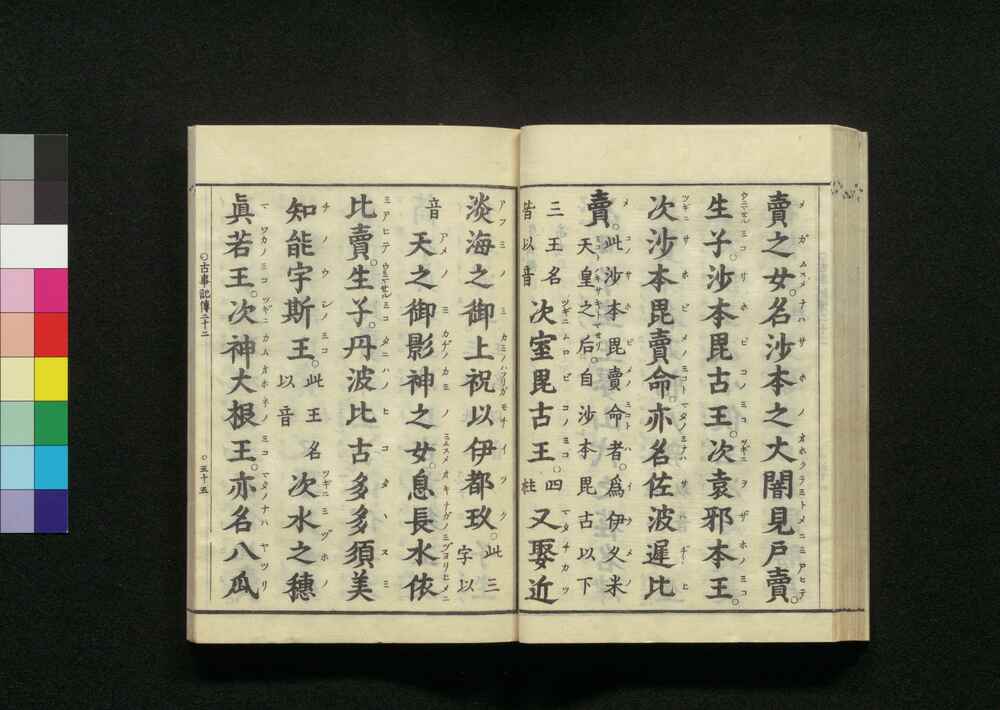 賣之女。名沙本之大闇見戸賣。
生子。沙本毘古王。次袁邪本王。
次沙本毘賣命。亦名佐波遲比
賣。此沙本毘賣命者。爲伊久米
天皇之后。自沙本毘古以下
三王名
皆以音
次室毘古王。四
柱
又娶近
淡海之御上祝以伊都玖。此三
字以
音
天之御影神之女。息長水依
比賣。生子。丹波比古多多須美
知能宇斯王。此王名
以音
次水之穗
眞若王。次神大根王。亦名八瓜
○古事記傳二十二
○五十五